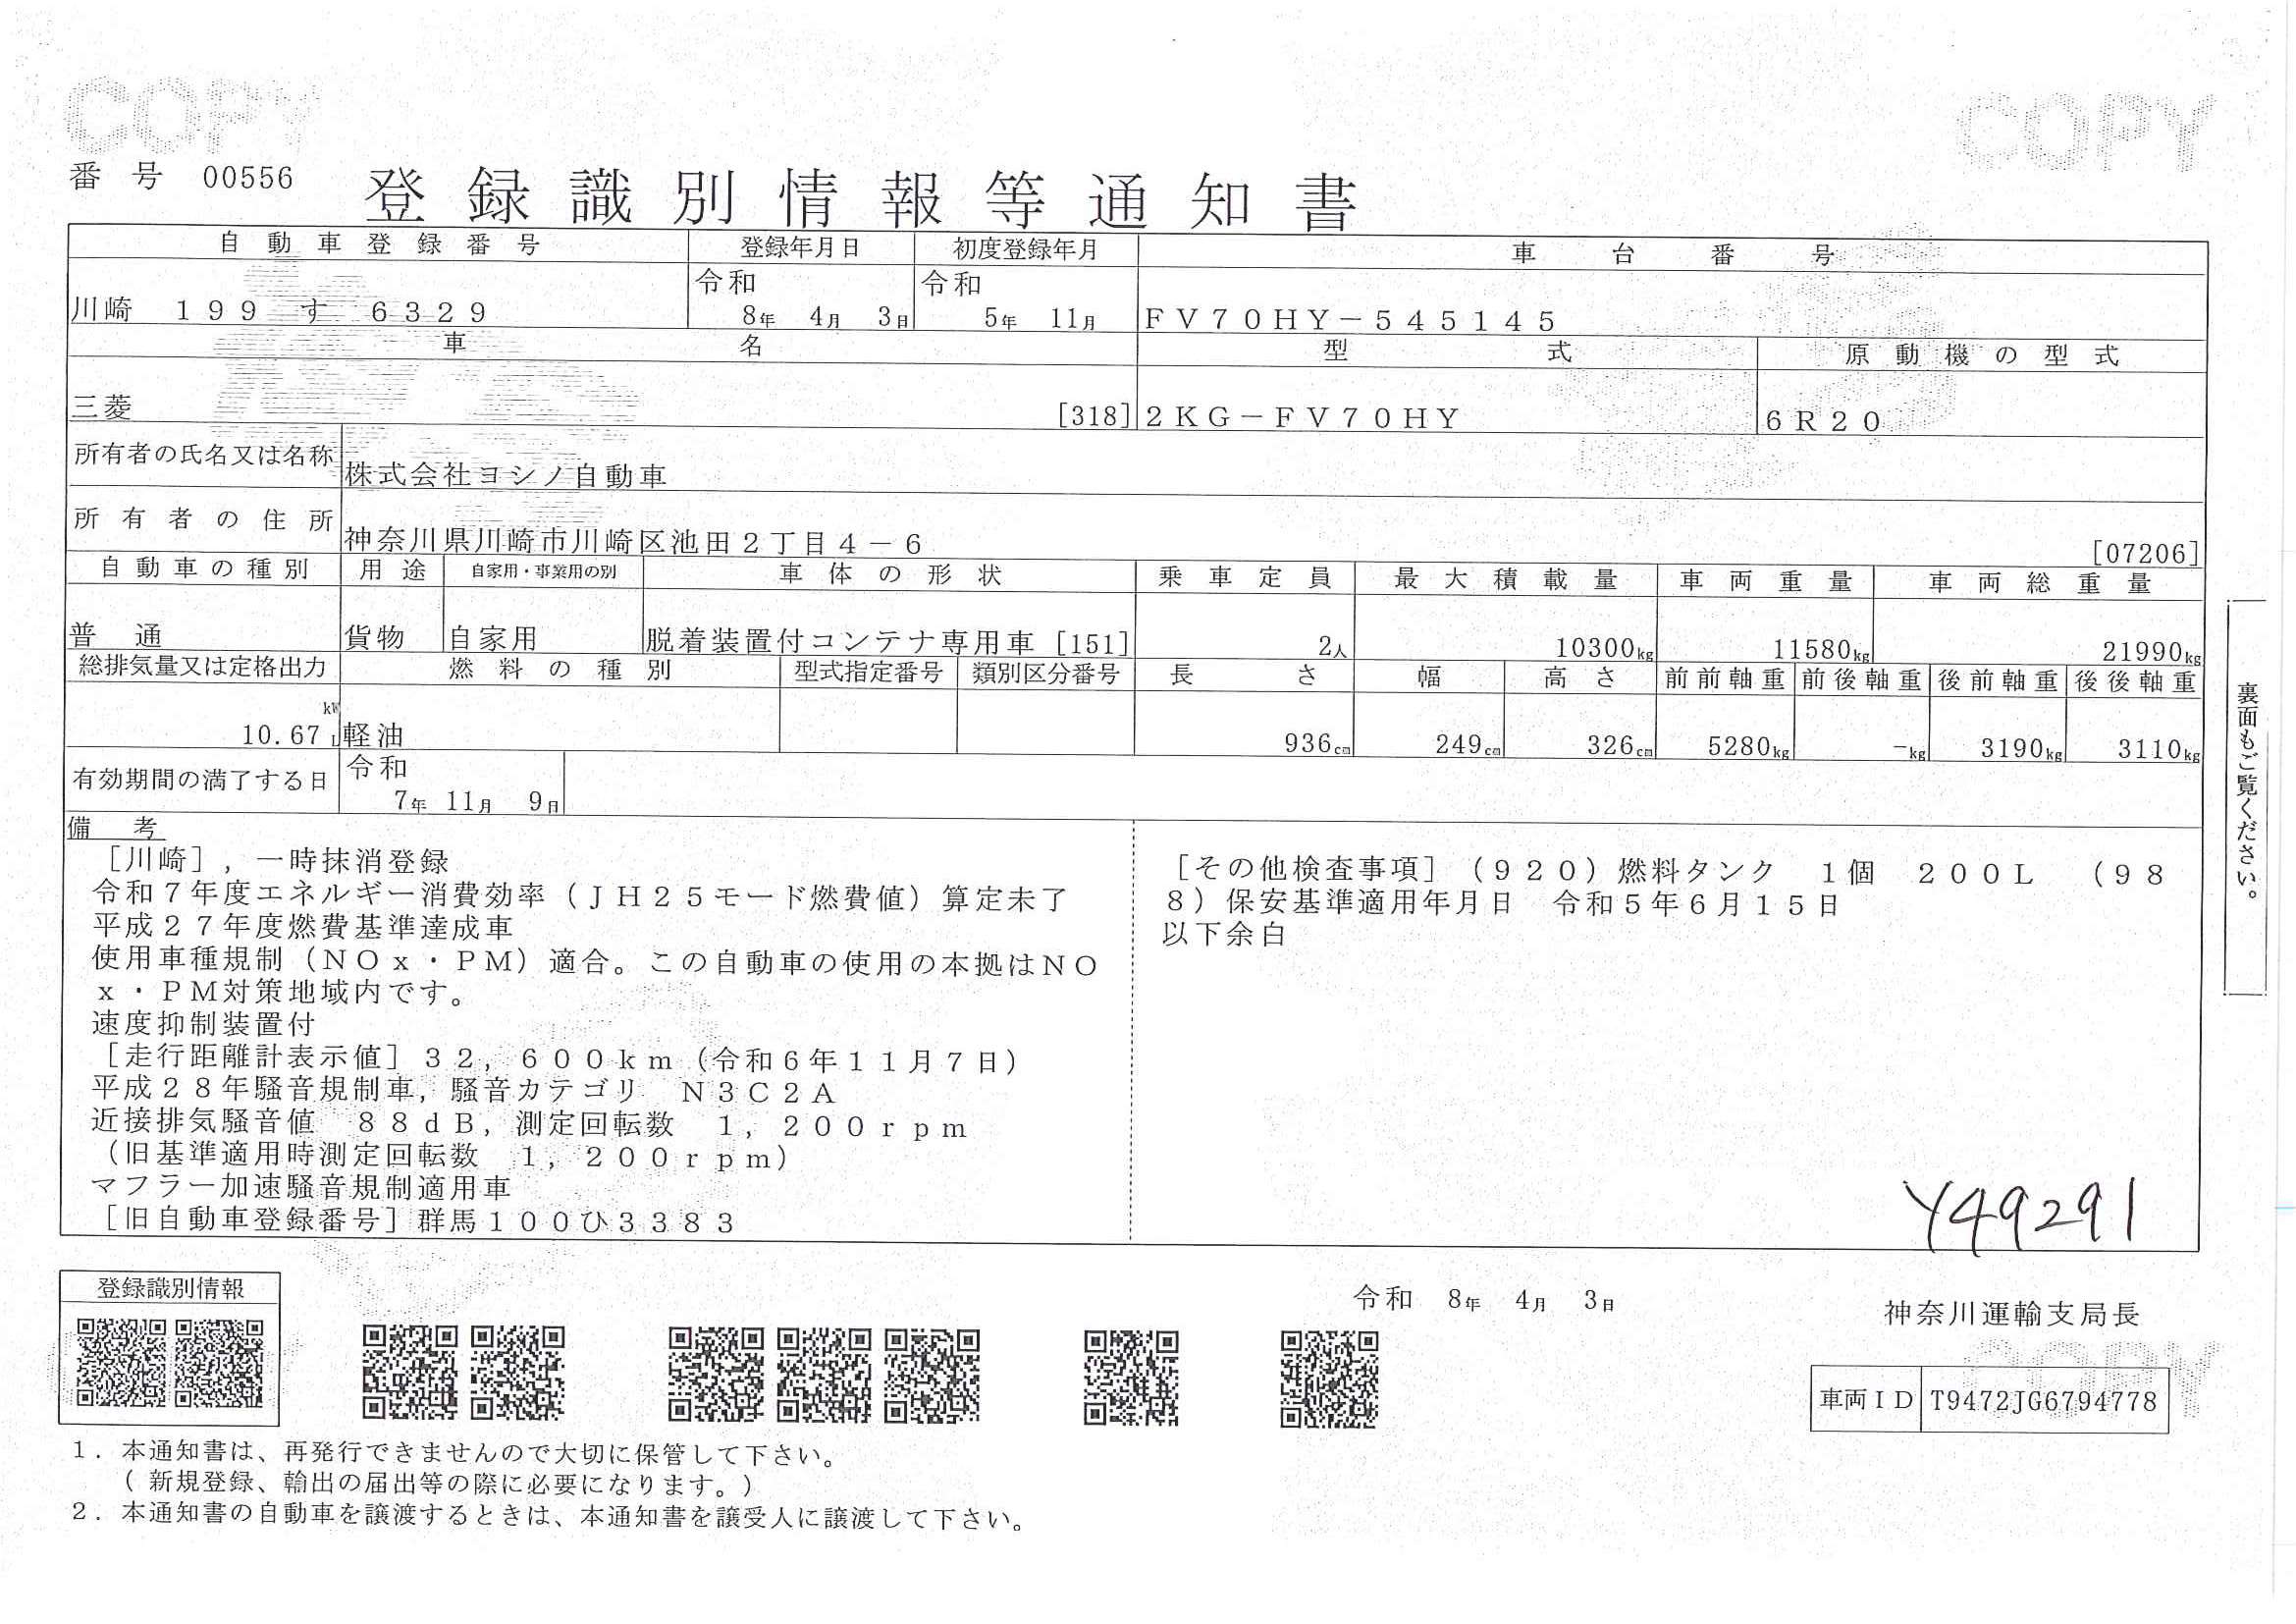 COPY
COPY
番号 00556
登録識別情報等通知書
自動車登録番号 登録年月日 初度登録年月 車台番号
川崎 199 す 6329 令和 8年 4月 3日 令和 5年 11月 FV70HY-545145
車名 型式 原動機の型式
三菱 [318] 2KG-FV70HY 6R20
所有者の氏名又は名称 株式会社ヨシノ自動車
所有者の住所 神奈川県川崎市川崎区池田2丁目4-6 [07206]
自動車の種別 用途 自家用・事業用の別 車体の形状 乗車定員 最大積載量 車両重量 車両総重量
普通 貨物 自家用 脱着装置付コンテナ専用車 [151] 2人 10300kg 11580kg 21990kg
総排気量又は定格出力 燃料の種別 型式指定番号 類別区分番号 長さ 幅 高さ 前前軸重 前後軸重 後前軸重 後後軸重
10.67 kW L 軽油 936cm 249cm 326cm 5280kg -kg 3190kg 3110kg
有効期間の満了する日 令和 7年 11月 9日
備考
[川崎],一時抹消登録
令和7年度エネルギー消費効率(JH25モード燃費値)算定未了
平成27年度燃費基準達成車
使用車種規制(NOx・PM)適合。この自動車の使用の本拠はNO
x・PM対策地域内です。
速度抑制装置付
[走行距離計表示値]32,600km(令和6年11月7日)
平成28年騒音規制車,騒音カテゴリ N3C2A
近接排気騒音値 88dB,測定回転数 1,200rpm
(旧基準適用時測定回転数 1,200rpm)
マフラー加速騒音規制適用車
[旧自動車登録番号]群馬100ひ3383
[その他検査事項](920)燃料タンク 1個 200L (98
8)保安基準適用年月日 令和5年6月15日
以下余白
Y49291
裏面もご覧ください。
登録識別情報
令和 8年 4月 3日
神奈川運輸支局長
COPY
車両ID T9472JG6794778
1.本通知書は、再発行できませんので大切に保管して下さい。
(新規登録、輸出の届出等の際に必要になります。)
2.本通知書の自動車を譲渡するときは、本通知書を譲受人に譲渡して下さい。